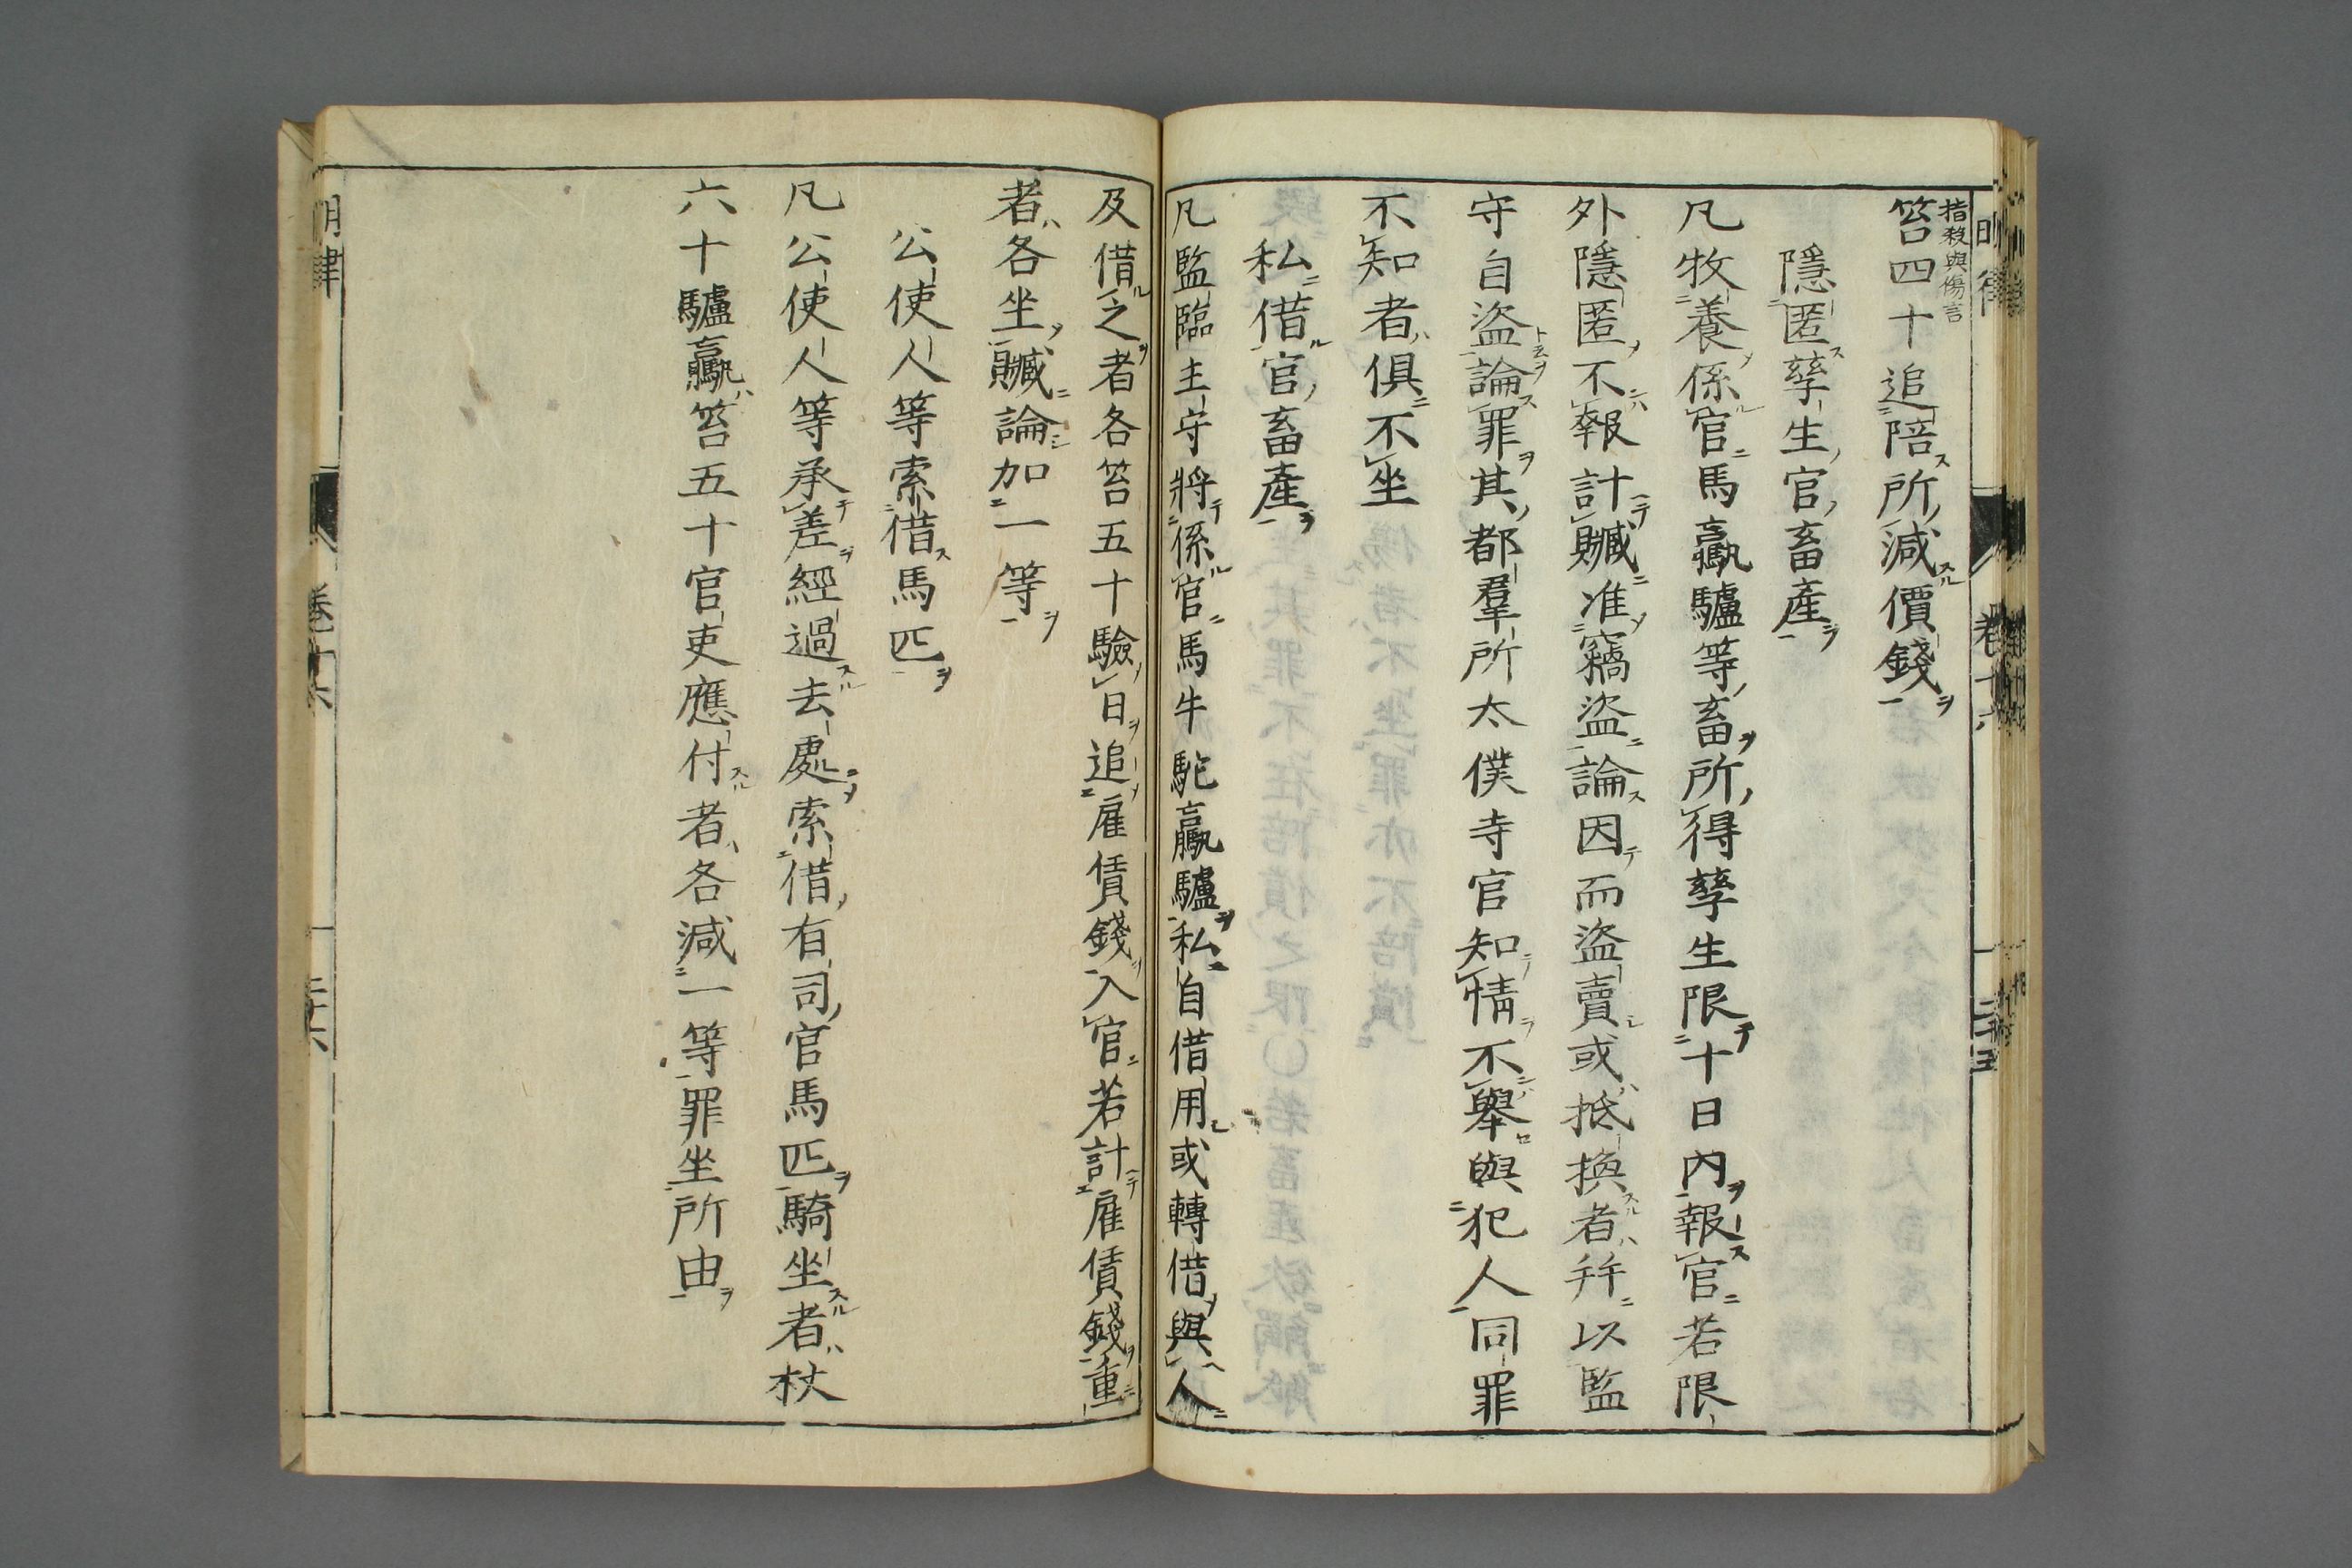 指殺與傷言
笞四十追陪所減價錢
隱匿孳生官畜產
凡牧養係官馬驘驢等畜所得孳生限十日內報官若限
外隱匿不報計贓准竊盜論因而盜賣或抵換者幷以監
守自盜論罪其都羣所太僕寺官知情不舉與犯人同罪
不知者俱不坐
私借官畜產
凡監臨主守將係官馬牛駝驘驢私自借用或轉借與人
及借之者各笞五十驗日追雇賃錢入官若計雇賃錢重
者各坐贓論加一等
公使人等索借馬匹
凡公使人等承差經過去處索借有司官馬匹騎坐者杖
六十驢驘笞五十官吏應付者各減一等罪坐所由
明律
卷十六